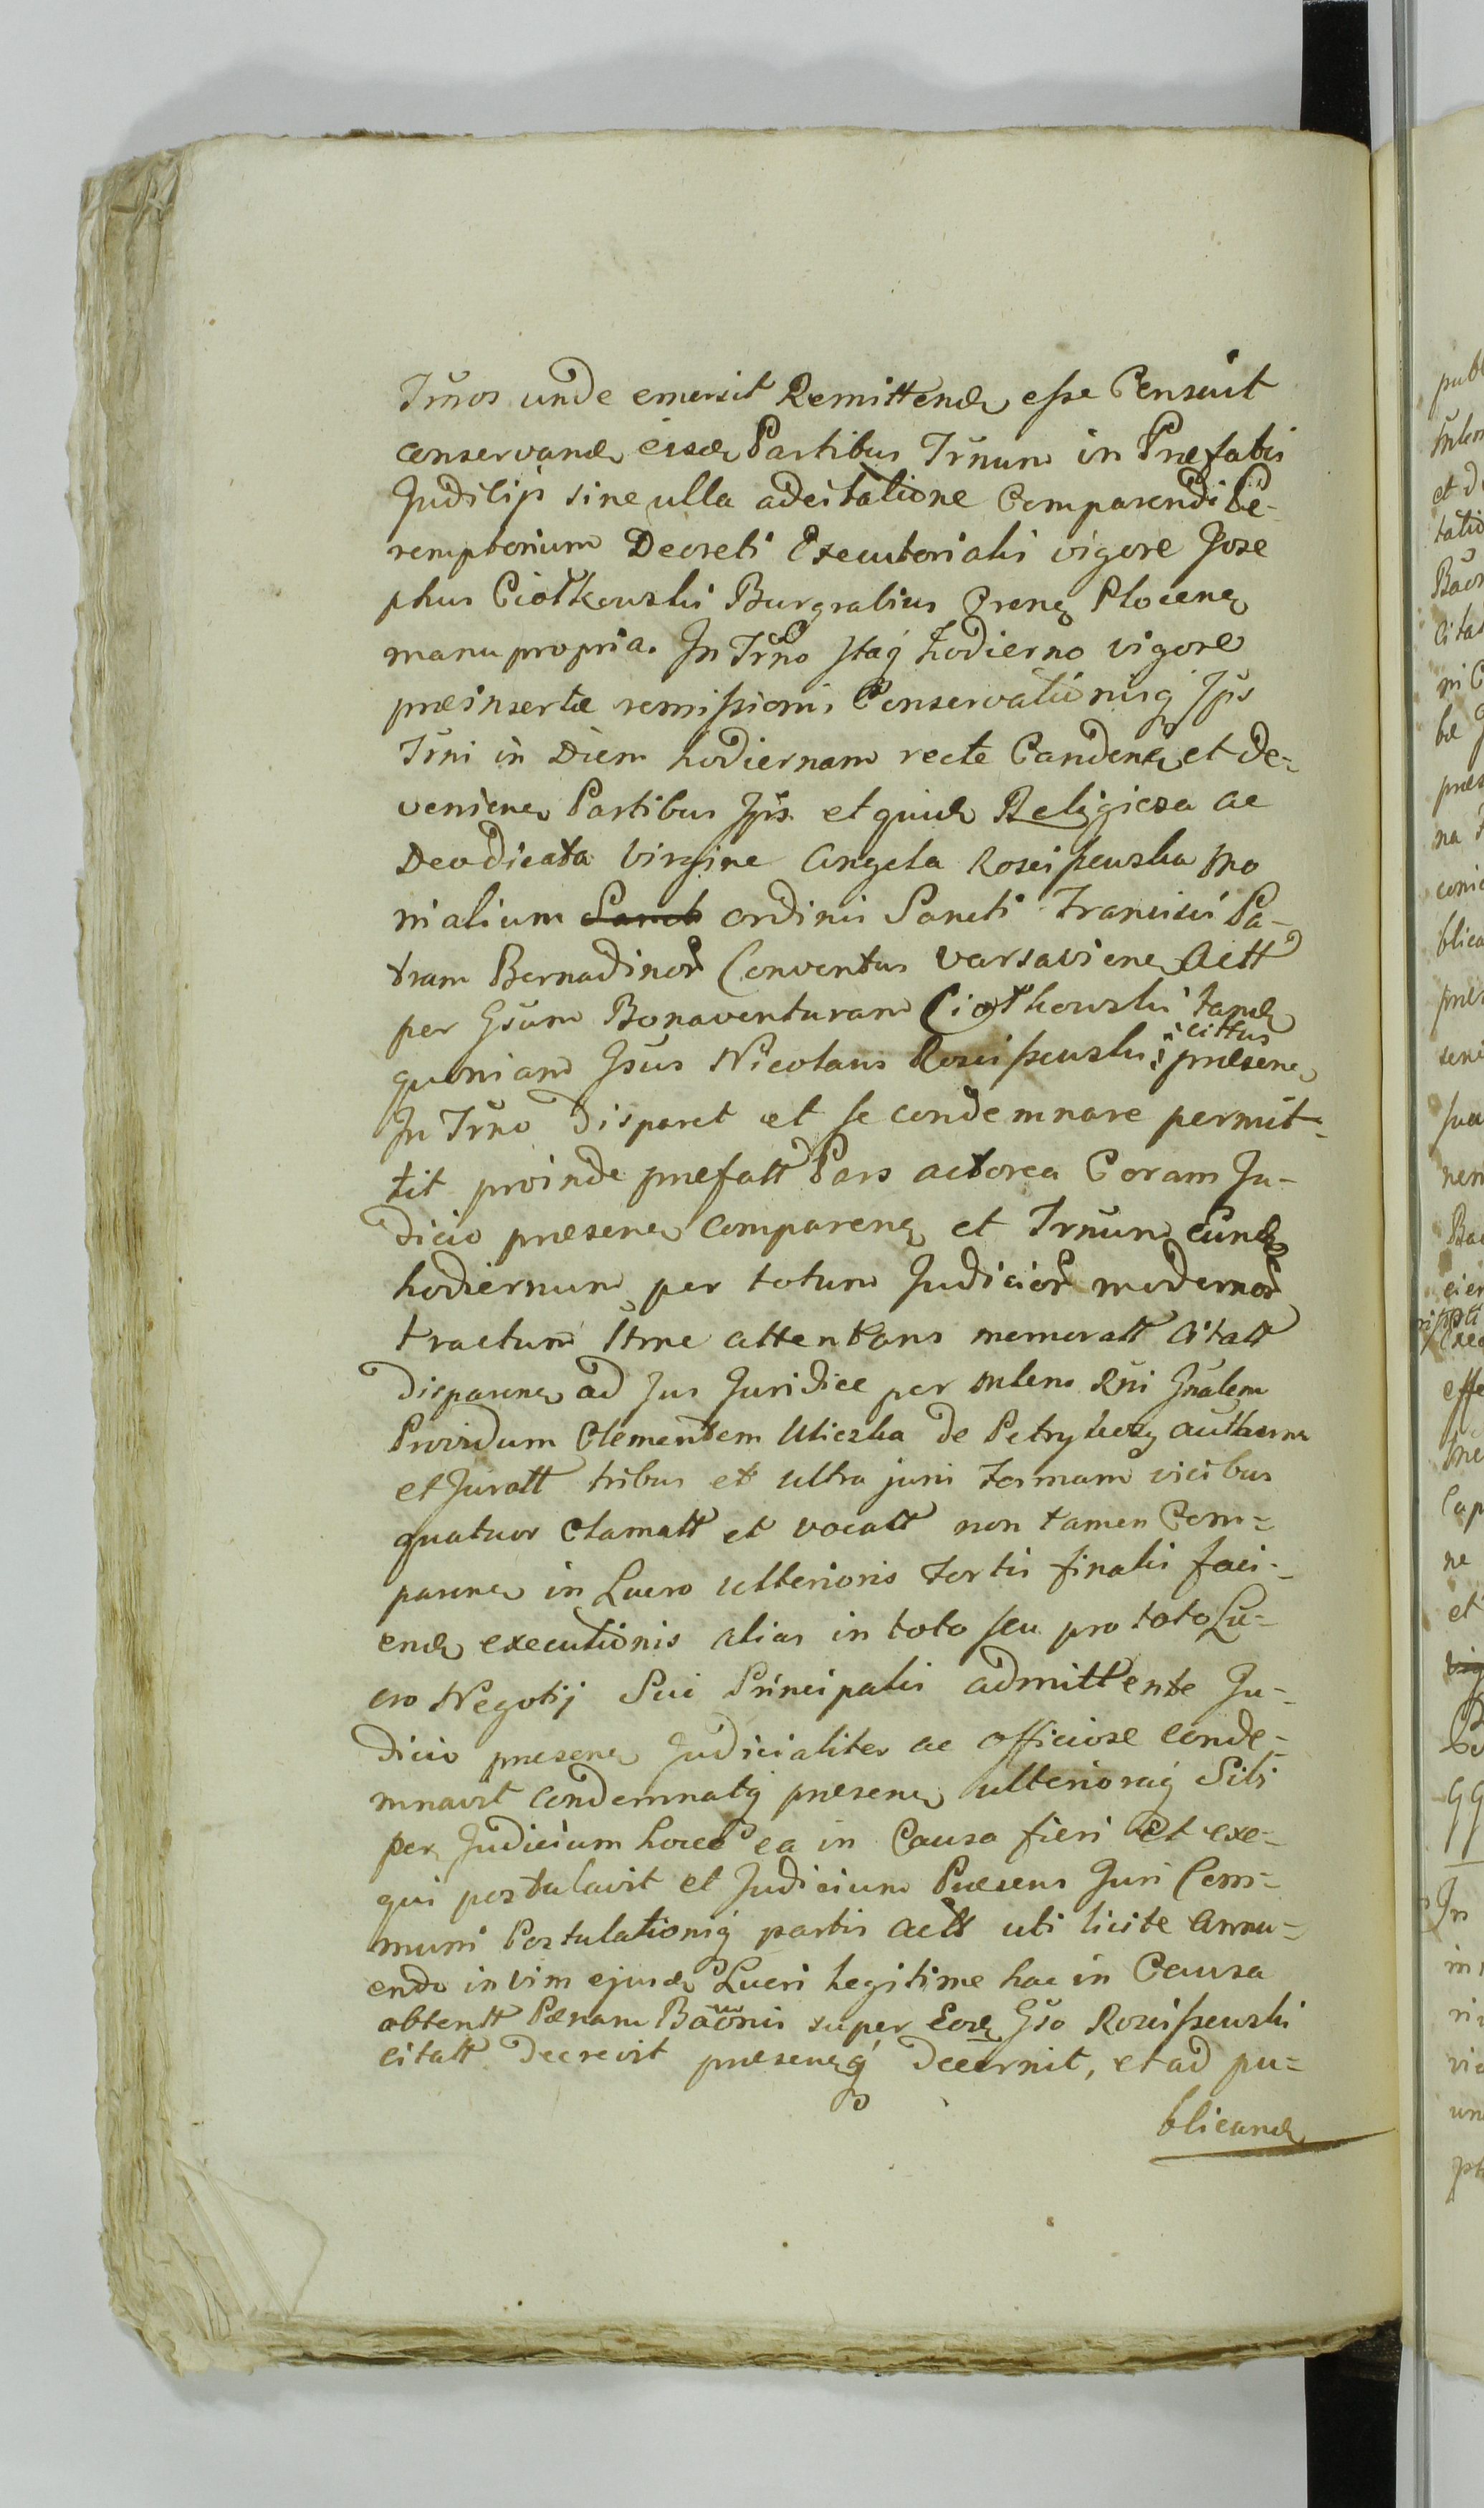 Trnos unde emersit Remittend esse Censuit
conservand eisd Partibus Trnum in Præfatis
Judicijs sine ulla adcitatione Comparendi Pe-
remptorium Decreti Executorialis vigore Jose
phus Ciołkowski Burgrabius Crens Plocens
manu propria. In Trno itaq hodierno vigore
præinsertæ remissionis Conservationisq Jps
Trni in Diem hodiernam recte Candens et de-
veniens Partibus Jps. et quid Religiosa ac
Deodicata Virgine Angela Rosciszewska Mo
nialium Sanct ordinis Sancti Francisci Pa-
tram Bernadinor Conventus Varsaviens Actt
per Gsum Bonaventuram Ciołkowski tand
quoniam Gsus Nicolaus Rosciszewski cittus præsens
In Trno disparet et se condemnare permit-
tit proinde præfatt Pars actorea Coram Ju-
dicio præsens comparens et Trnum eund
hodiernum per totum Judicior modernor
tractum ltme attentans memoratt citatt
disparens ad Jus Juridice per Mlem Rni Gnalem
Providum Clementem Uliczka de Petrykozy authenm
et Juratt tribus et ultra juris formam vicibus
quatuor clamatt et vocatt non tamen Com-
parens in Lucro ulterioris fortis finalis faci-
end executionis alias in toto seu pro toto Lu-
cro Negotij Sui Principalis admittente Ju-
dicio præsens Judicialiter ac officiose conde-
mnavit condemnatq præsens ulterioraq Sibi
per Judicium hocce ea in Causa fieri et exe-
qui postulavit et Judicium Præsens Juri Com-
muni Postulationiq partis actt uti licite annu-
endo in vim ejusd Lucri legitime hac in Causa
obtentt Pænam Baonis super Eod Gso Rosciszewski
citatt decrevit præsensq decernit, et ad pu-
blicand